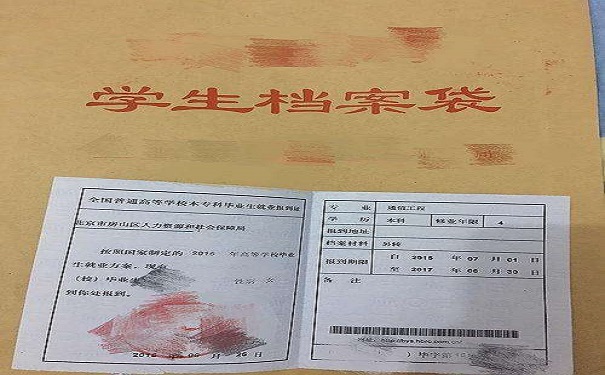 学生档案袋
全国普通高等学校本专科毕业生就业报到证
北京市房山区人力资源和社会保障局
按照国家制定的 2015 年高等学校毕业
生就业方案，现有
（校）毕业生 性别 女
到你处报到。
2015 年 06 月 26 日
专业 通信工程
学历 本科 修业年限 4
报到地址
档案材料 另转
报到期限 自 2015 年 07 月 01 日
至 2017 年 06 月 30 日
备注
网址：
毕字第